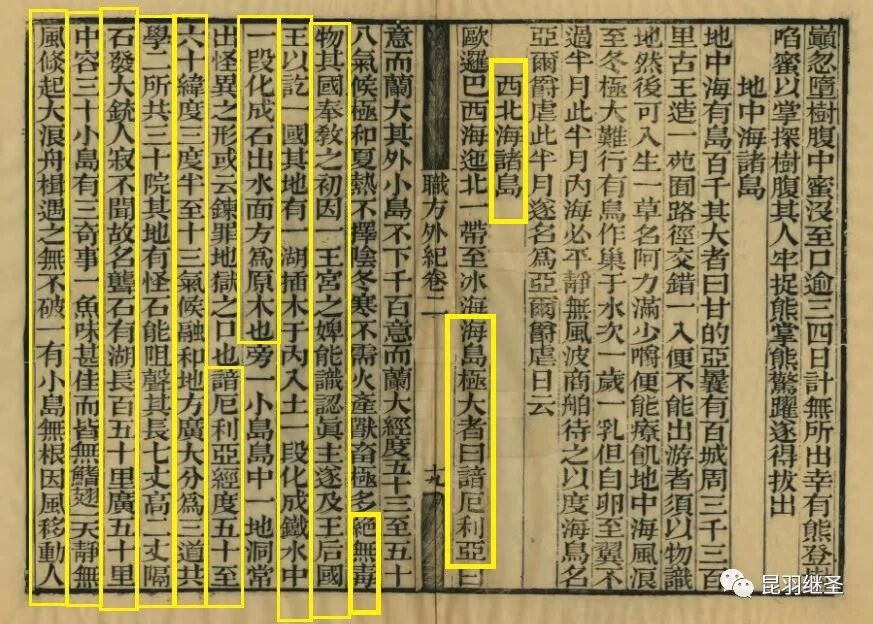 巔忽墮樹腹中蜜沒至口逾三四日計無所出幸有熊登樹
啗蜜以掌探樹腹其人牢捉熊掌熊驚躍遂得拔出
地中海諸島
地中海有島百千其大者曰甘的亞曩有百城周三千三百
里古王造一苑囿路徑交錯一入便不能出游者須以物識
地然後可入生一草名阿力滿少嚼便能療飢地中海風浪
至冬極大難行有鳥作巢于水次一歲一乳但自卵至翼不
過半月此半月內海必平靜無風波商舶待之以度海鳥名
亞爾爵虐此半月遂名為亞爾爵虐日云
西北海諸島
歐邏巴西海迤北一帶至冰海海島極大者曰諳厄利亞曰
職方外紀卷二
十九
意而蘭大其外小島不下千百意而蘭大經度五十三至五十
八氣候極和夏熱不擇陰冬寒不需火產獸畜極多絕無毒
物其國奉教之初因一王宮之婢能識認真主遂及王后國
王以訖一國其地有一湖插木于內入土一段化成鐵水中
一段化成石出水面方為原木也旁一小島島中一地洞常
出怪異之形或云鍊罪地獄之口也諳厄利亞經度五十至
六十緯度三度半至十三氣候融和地方廣大分為三道共
學二所共三十院其地有怪石能阻聲其長七丈高二丈隔
石發大銃人寂不聞故名聾石有湖長百五十里廣五十里
中容三十小島有三奇事一魚味甚佳而皆無鰭翅一天靜無
風倏起大浪舟楫遇之無不破一有小島無根因風移動人
昆羽继圣